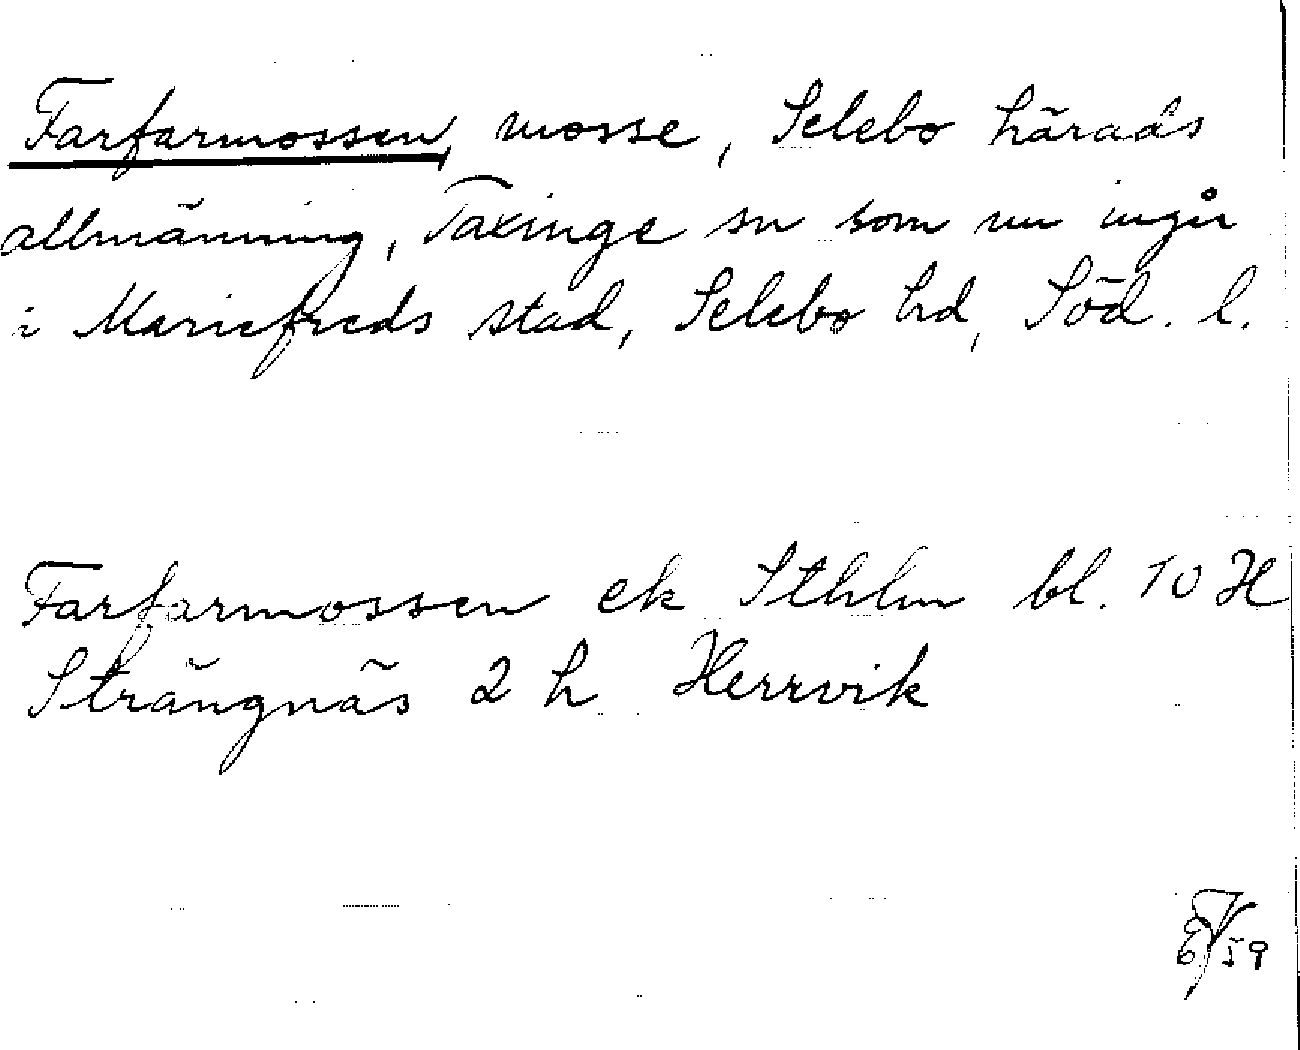 Farfarmossen, mosse, Selebo härads
allmänning, Taxinge sn som nu ingår
i Mariefreds stad, Selebo hd, Söd. l.
Farfarmossen ek Sthlm bl. 10 H
Strängnäs 2 h Herrvik
59